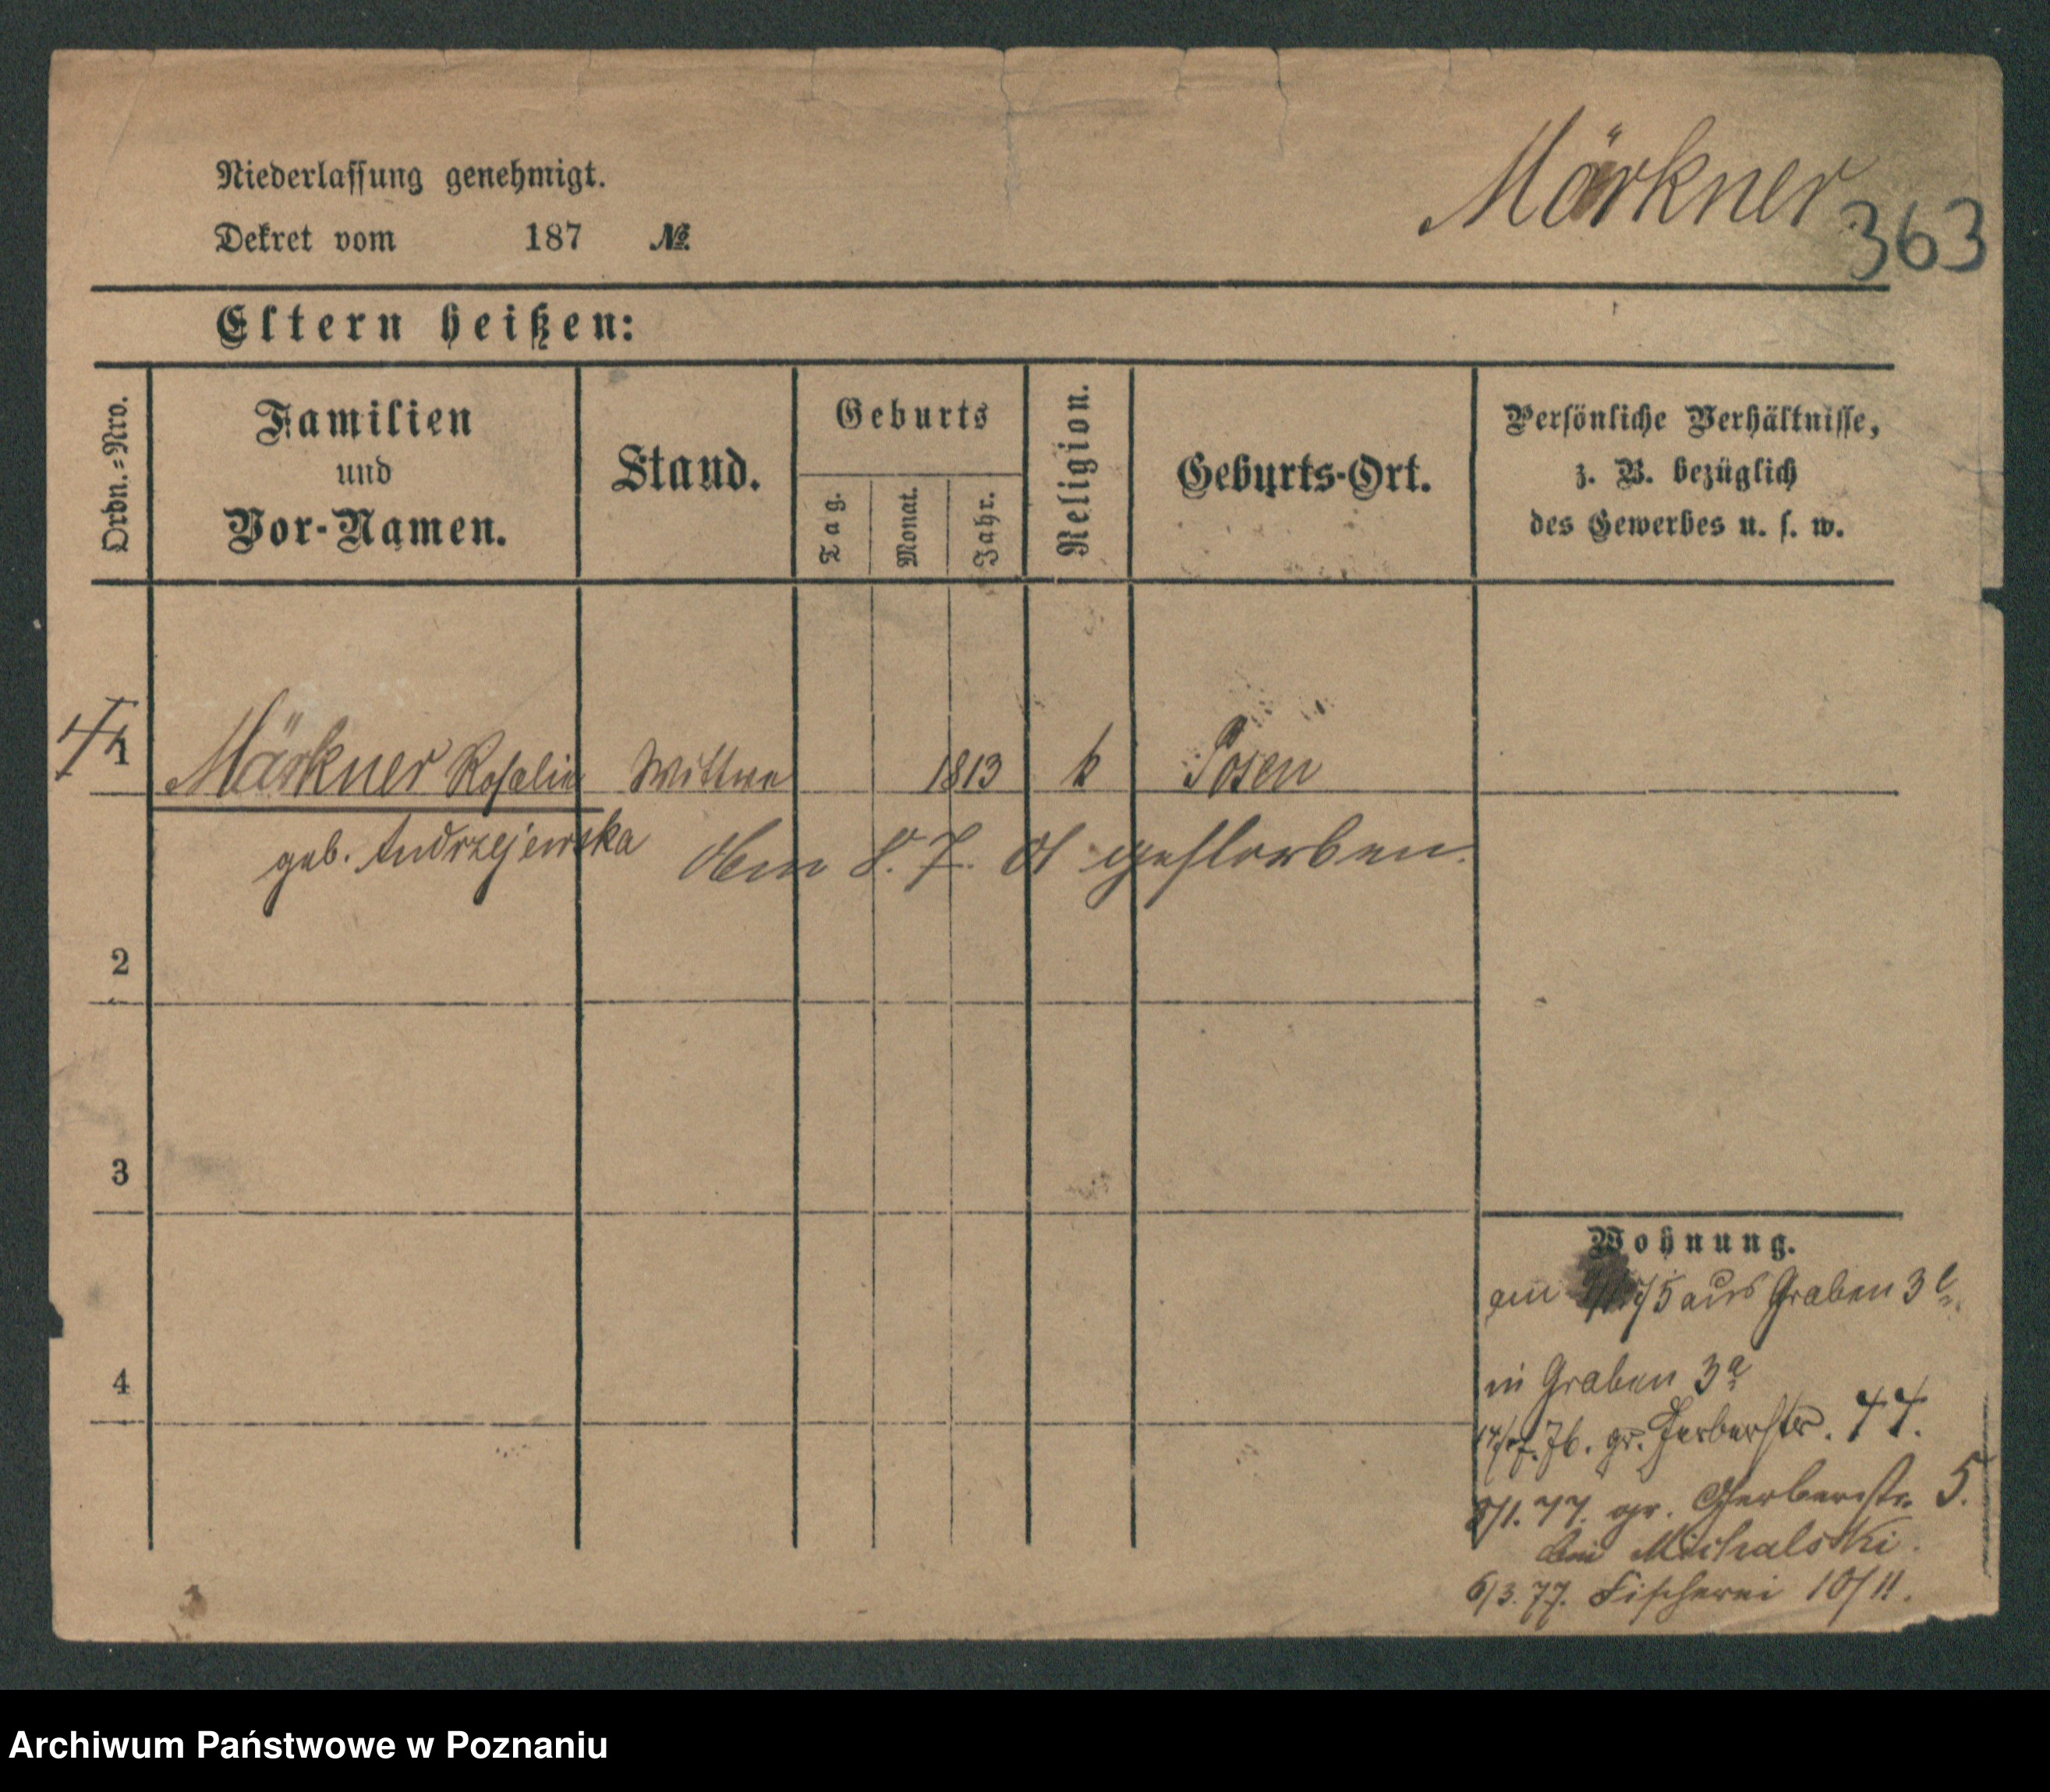 Niederlassung genehmigt.
Dekret vom 187 №
Märkner
363
Eltern heißen:
Ordn.-Nro.
Familien
und
Vor-Namen.
Stand.
Geburts
Tag.
Monat.
Jahr.
Religion.
Geburts-Ort.
Persönliche Verhältnisse,
z. B. bezüglich
des Gewerbes u. s. w.
1 Märkner Rosalie Wittwe 1813 k Posen
geb. Andrzejewska
8. 7. 81 gestorben.
2
3
4
Wohnung.
am 75 aus Graben 3
in Graben 3a
76. gr. Gerberstr. 44.
/1. 77. gr. Gerberstr. 5.
bei Michalski.
6/3. 77. Fischerei 10/11.
Archiwum Państwowe w Poznaniu